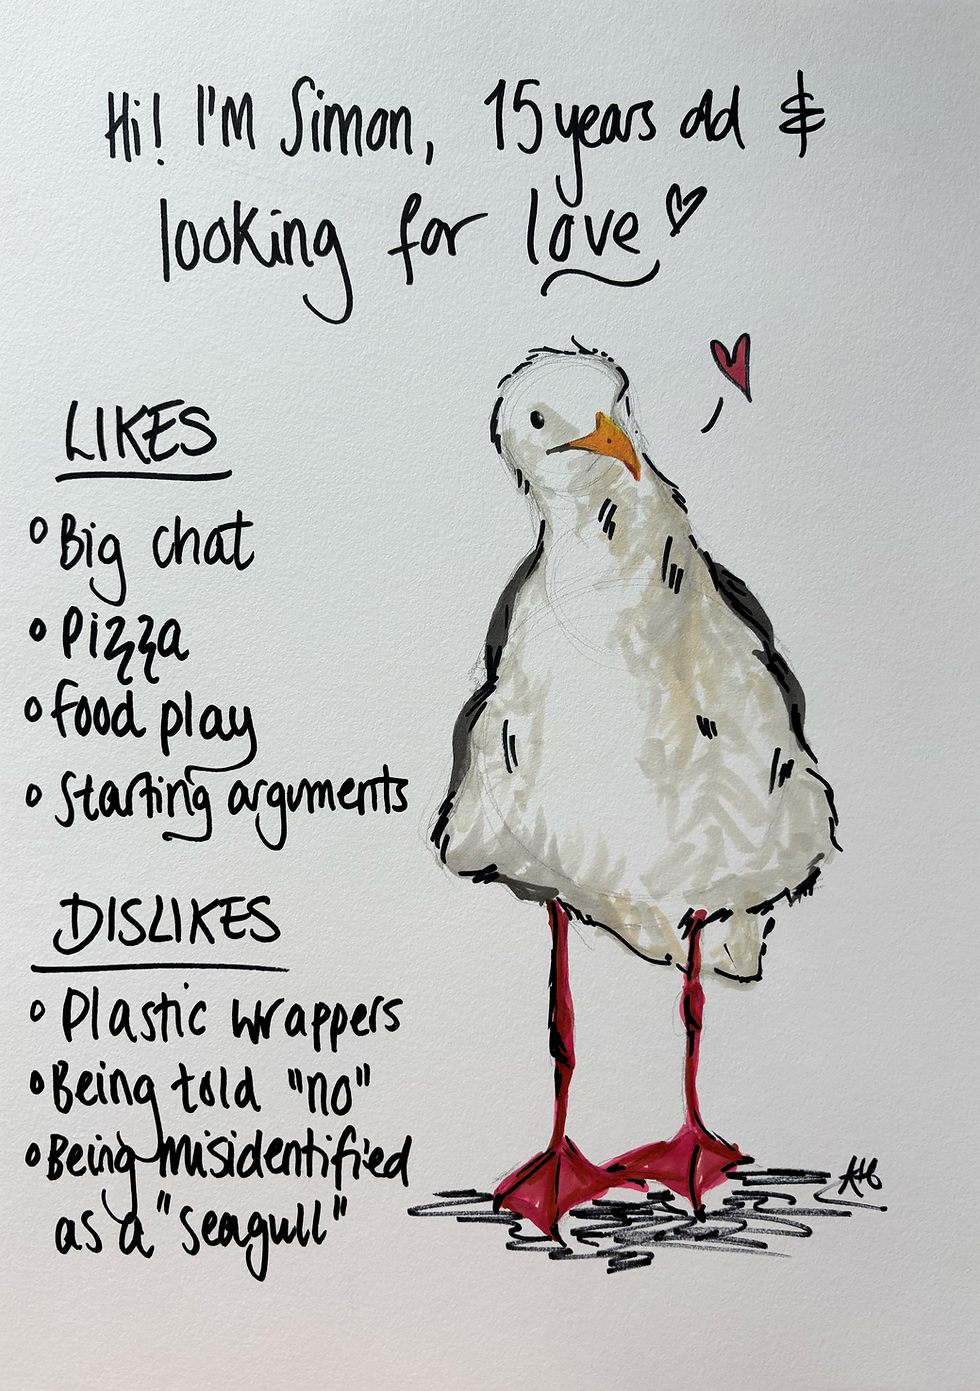 Hi! I'm Simon, 15 years old &
looking for love ♡
LIKES
○ Big chat
○ Pizza
○ food play
○ Starting arguments
DISLIKES
○ Plastic wrappers
○ Being told "no"
○ Being misidentified
as a "seagull"